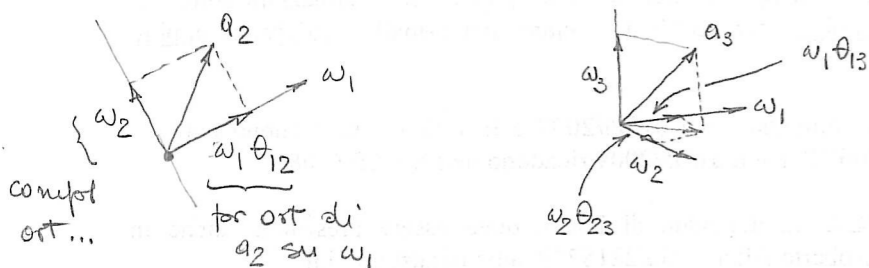 a₂
ω₁
ω₂
ω₁ θ₁₂
compl
ort...
pr ort di
a₂ su ω₁
a₃
ω₁ θ₁₃
ω₃
ω₁
ω₂
ω₂ θ₂₃